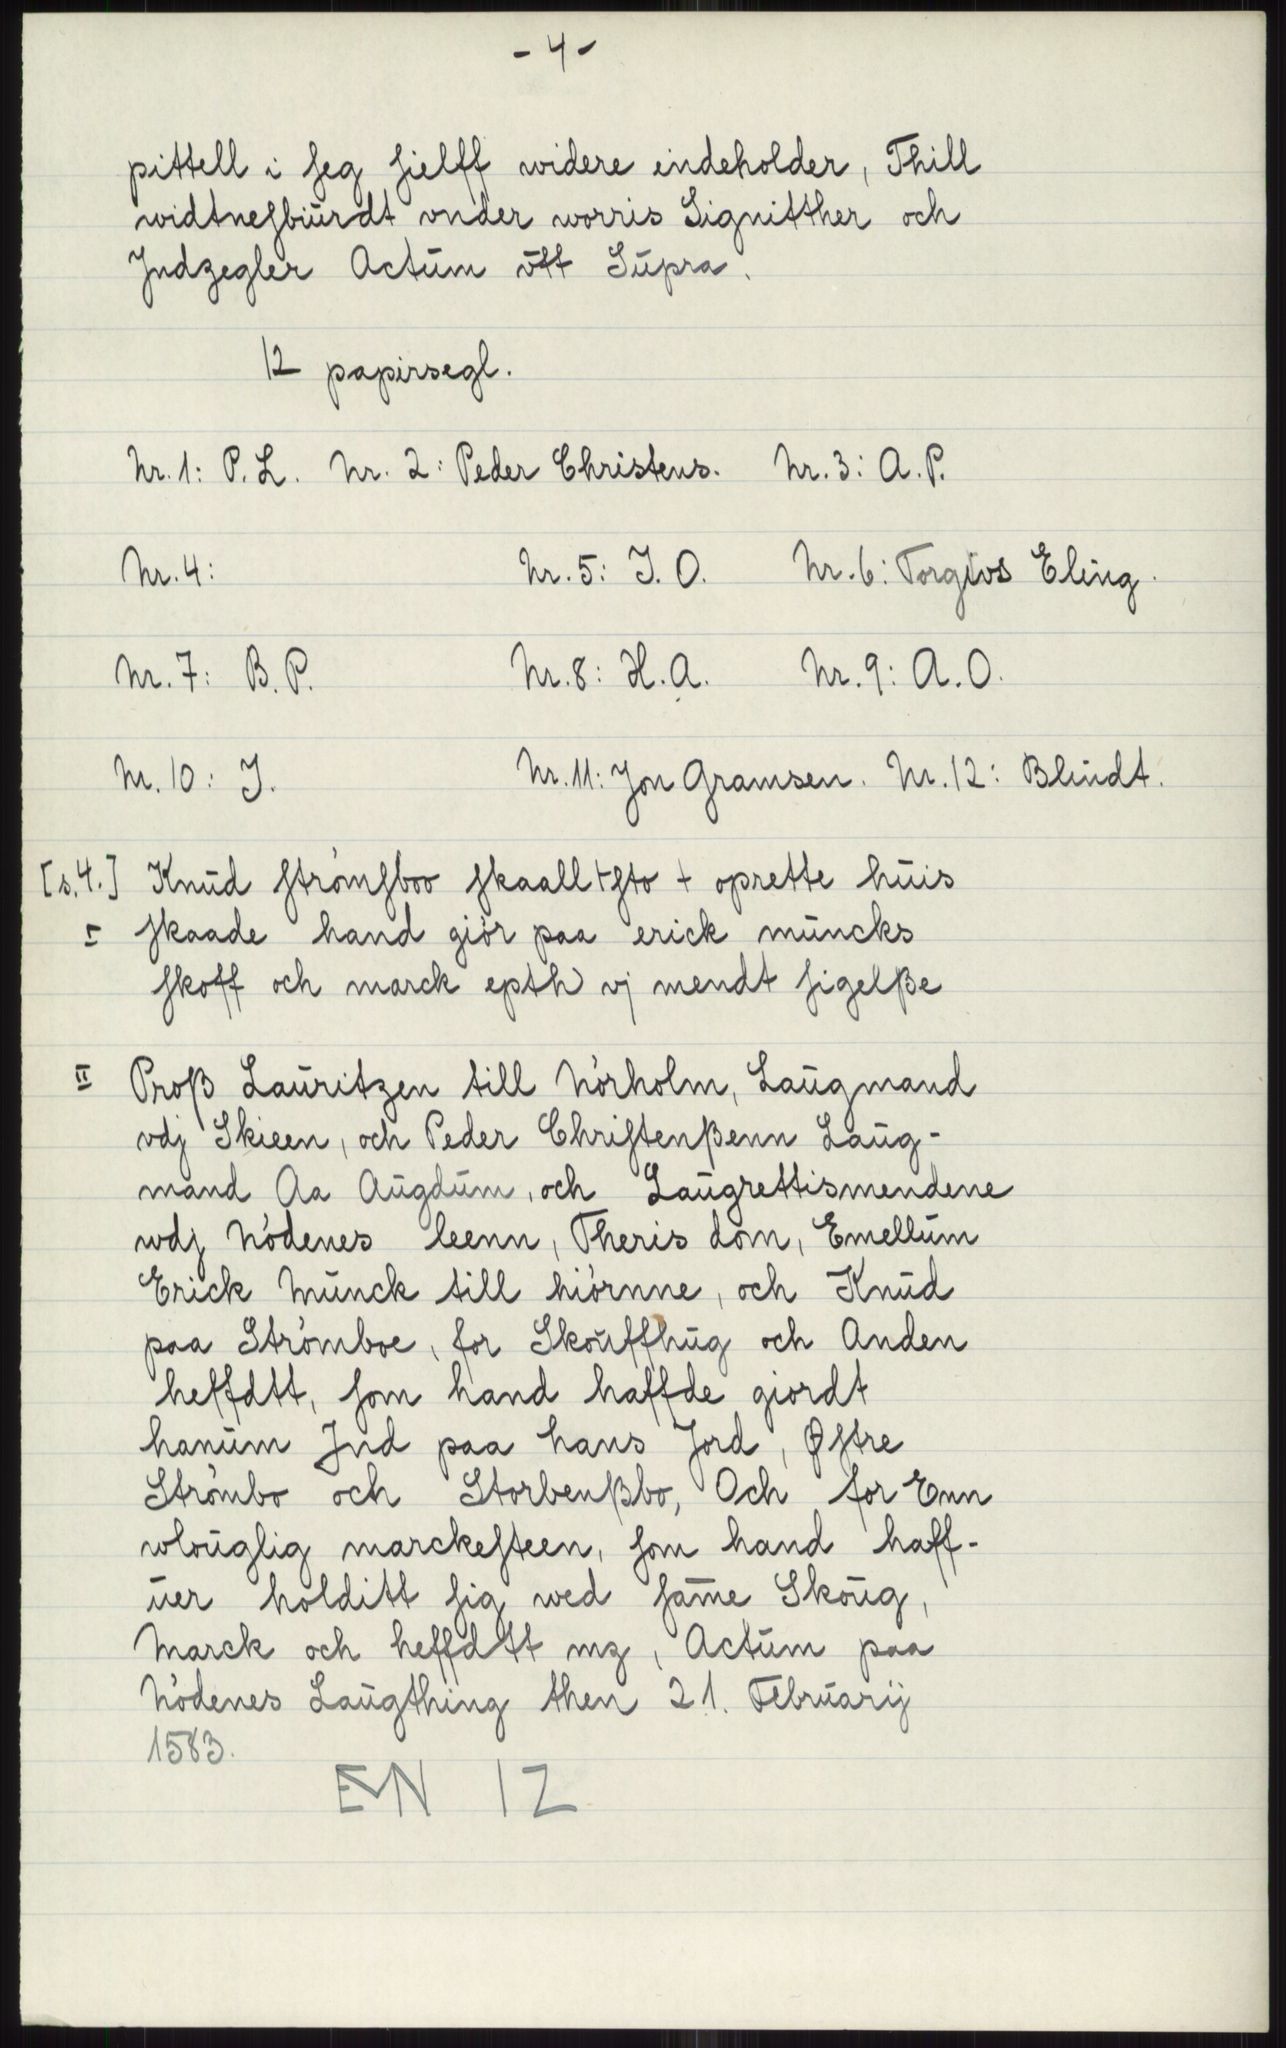 - 4 -
pittell i ſeg ſielff widere eindeholder, Thill
widtneſbiŭrdt vnder worris Signitther och
Jndzegler Actŭm ŭtt Sŭpra.
12 papirsegl.
Nr. 1: P. L. Nr. 2: Peder Christens. Nr. 3: A. P.
Nr. 4: Nr. 5: J. O. Nr. 6: Torgivs Eling.
Nr. 7: B. P. Nr. 8: H. A. Nr. 9: A. O.
Nr. 10: J. Nr. 11: Jon Gramsen. Nr. 12: Blindt.
[s. 4.] Knŭd ſtrómſboo ſkaall + ſto + oprette hŭis
I ſkaade hand giór paa erick mŭncks
ſkoff och marck epth vj mendt ſigelße
II Proß Laŭritzen till Nórholm, Laŭgmand
vdj Skieen, och Peder Chriſtenßenn Laŭg-
mand Aa Aŭgdŭm, och Laŭgrettismendene
wdj Nódenes leenn, Theris dom, Emellŭm
Erick Mŭnck till hiórnne, och Knŭd
paa Strómboe, for Skoŭffhŭg och Anden
heffdtt, ſom hand haffde giordt
hanŭm Jnd paa hans Jord, Øſtre
Strómbo och Storbenßbo, Och for Enn
wloŭglig marckeſteen, ſom hand haff-
ŭer holditt ſig wed ſam̅e Skoŭg,
Marck och heffdtt mz, Actŭm paa
Nódenes Laŭgthing then 21. Febrŭarij
1583.
EMN 12